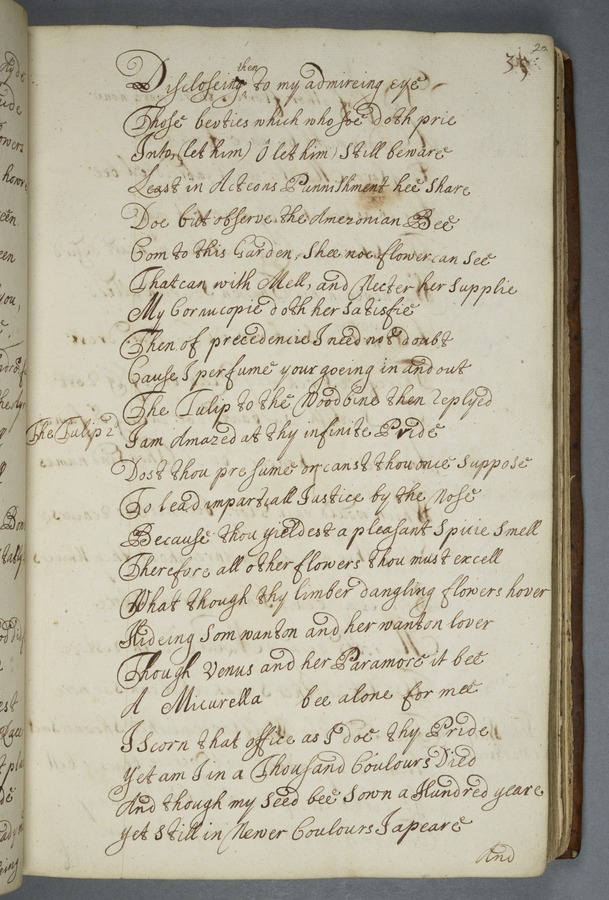 20
35
Discloseing then to my admireing eye
Those bevties which whosoe doth prie
Into, (let him) O let him) Still beware
Least in Acteons Punnishment hee Share
Doe but observe the Amezonian Bee
Com to this Garden, Shee noe flower can See
That can with Mell, and Necter her Supplie
My Cornucopie doth her Satisfie
Then of precedencie I need not doubt
Cause I perfume your goeing in and out
The Tulip to the Woodbine then replyed
The Tulip 2
I am Amazed at thy infinite Pride
Dost thou presume or canst thou once Suppose
To lead impartiall Justice by the Nose
Because thou yieldest a pleasant Spicie Smell
Therefore all other flowers thou must excell
What though thy limber dangling flowers hover
Hideing Som wanton and her wanton lover
Though Venus and her Paramore it bee
A Micurella bee alone for mee
I Scorn that office as I doe thy Pride
Yet am I in a Thousand Coulours Died
And though my Seed bee Sown a Hundred yeare
Yet Still in Newer Coulours I apeare
And